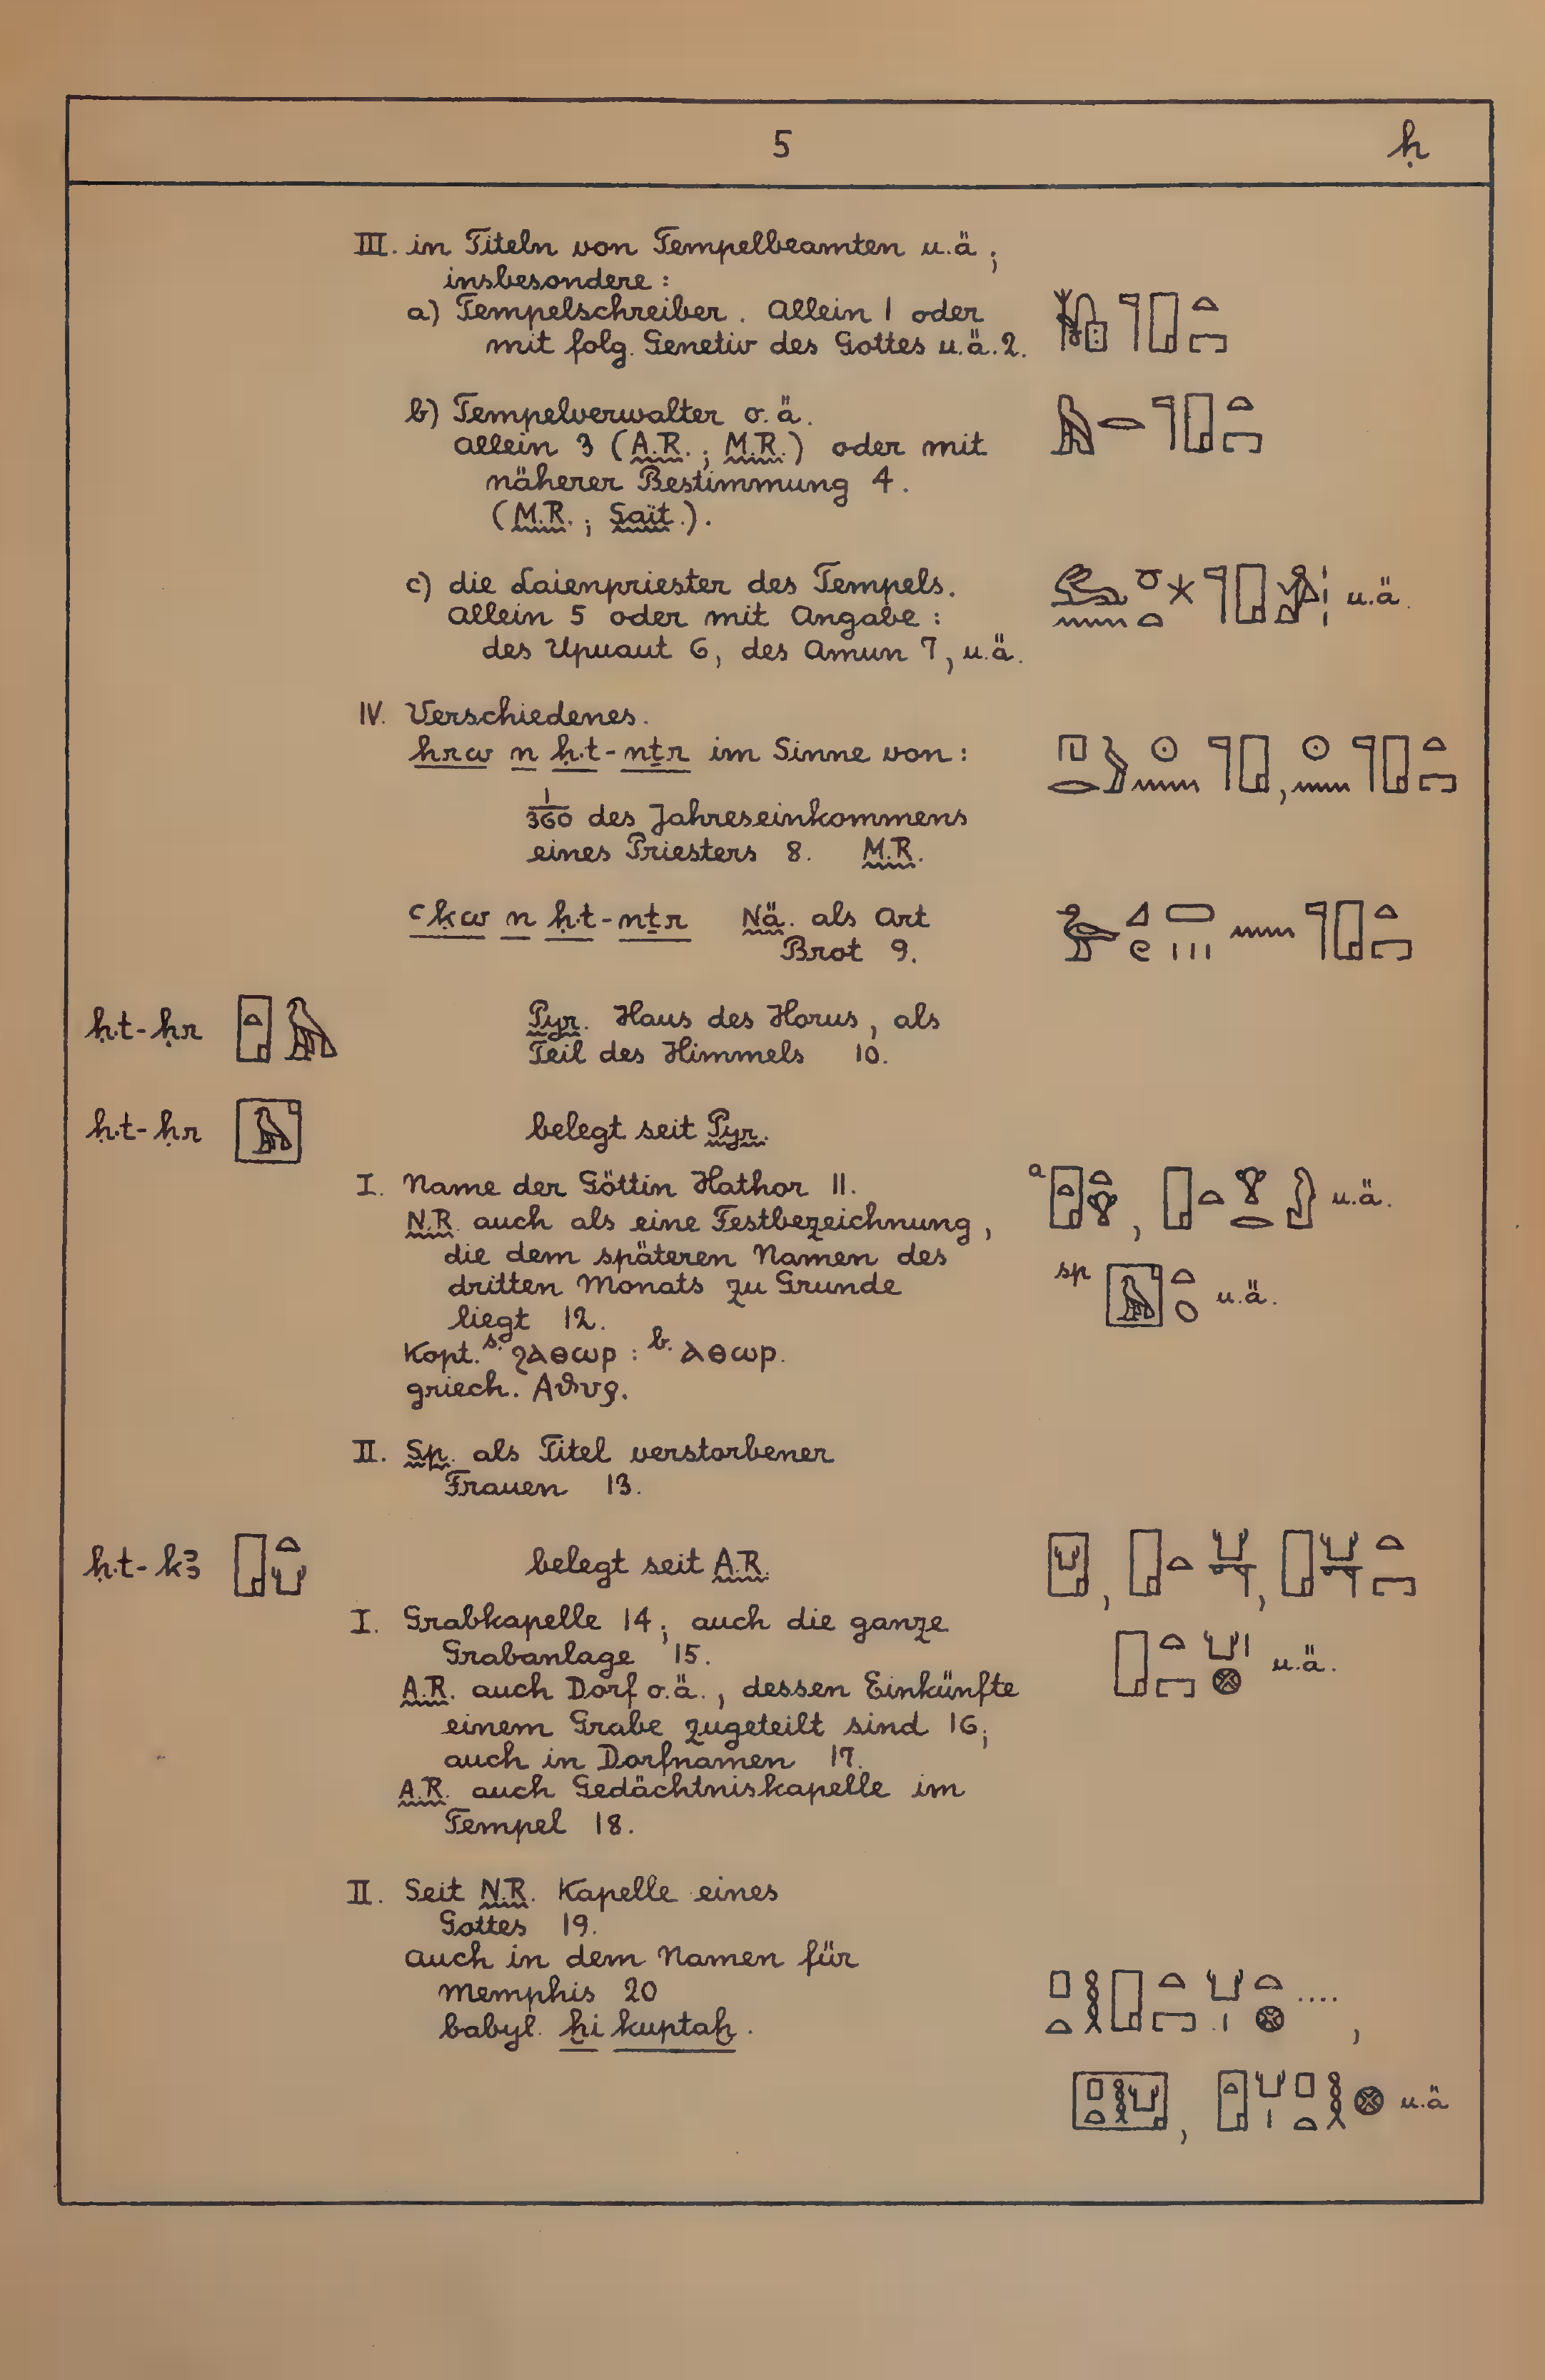 5 ḥ
III. in Titeln von Tempelbeamten u.ä;
insbesondere:
a) Tempelschreiber. Allein 1 oder
mit folg. Genetiv des Gottes u.ä. 2.
b) Tempelverwalter o.ä.
Allein 3 (A.R.; M.R.) oder mit
näherer Bestimmung 4.
(M.R.; Sait.).
c) die Laienpriester des Tempels. u.ä.
Allein 5 oder mit Angabe:
des Upuaut 6, des Amun 7, u.ä.
IV. Verschiedenes.
hrw n ḥ.t-nṯr im Sinne von:
1/360 des Jahreseinkommens
eines Priesters 8. M.R.
ꜥḳw n ḥ.t-nṯr Nä. als Art
Brot 9.
ḥ.t-ḥr Pyr. Haus des Horus, als
Teil des Himmels 10.
ḥ.t-ḥr belegt seit Pyr.
I. Name der Göttin Hathor 11. a , u.ä.
N.R. auch als eine Festbezeichnung,
die dem späteren Namen des sp u.ä.
dritten Monats zu Grunde
liegt 12.
Kopt. s. ϩⲁⲑⲱⲣ : b. ⲁⲑⲱⲣ.
griech. Αθυρ.
II. Sp. als Titel verstorbener
Frauen 13.
ḥ.t-kꜣ belegt seit A.R. , ,
I. Grabkapelle 14; auch die ganze
Grabanlage 15. u.ä.
A.R. auch Dorf o.ä., dessen Einkünfte
einem Grabe zugeteilt sind 16;
auch in Dorfnamen 17.
A.R. auch Gedächtniskapelle im
Tempel 18.
II. Seit N.R. Kapelle eines
Gottes 19.
auch in dem Namen für
Memphis 20 .... ,
babyl. ḫi kuptaḫ.
, u.ä